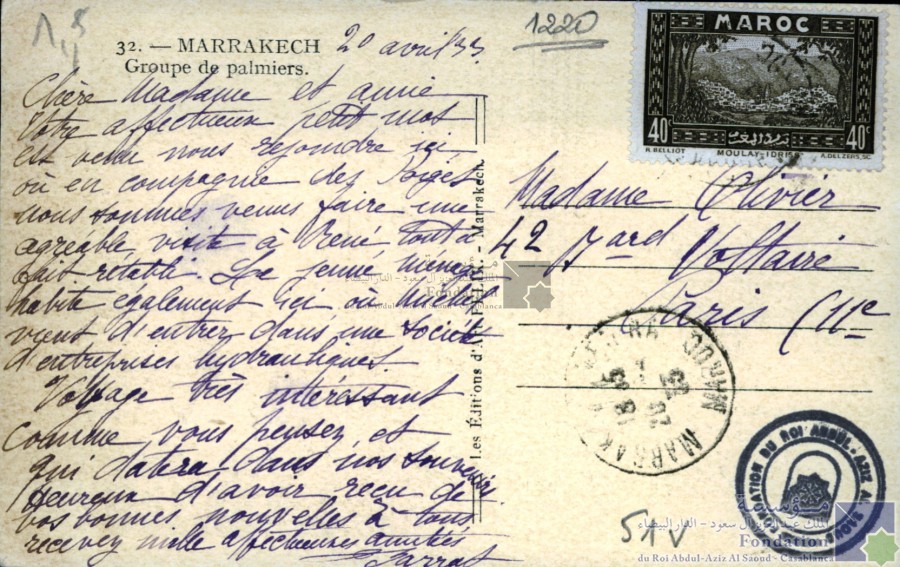 1220
MAROC
40c
40c
R. BELLIOT
MOULAY-IDRISS
A. DELZERS, SC.
32. — MARRAKECH
Groupe de palmiers.
20 avril 33
Chère Madame et amie
Votre affectueux petit mot
est venu nous rejoindre ici
où en compagnie des
nous sommes venus faire une
agréable visite à René tout à
fait rétabli. Le jeune
habite également ici, où Michel
vient d'entrer dans une société
d'entreprises hydrauliques.
Voyage très intéressant
comme vous pensez, et
qui datera dans nos souvenirs
Heureux d'avoir reçu de
vos bonnes nouvelles à tous
recevez mille affectueuses amitiés
Les Éditions d'Art - Marrakech
Madame Olivier
42 Bard Voltaire
Paris (11e
MARRAKECH MEDINA
MAROC
FONDATION DU ROI ABDUL-AZIZ AL SAOUD
51 V
مؤسسة
الملك عبد العزيز آل سعود - الدار البيضاء
Fondation
du Roi Abdul-Aziz Al Saoud - Casablanca
مؤسسة
الملك عبد العزيز آل سعود - الدار البيضاء
Fondation
du Roi Abdul-Aziz Al Saoud - Casablanca